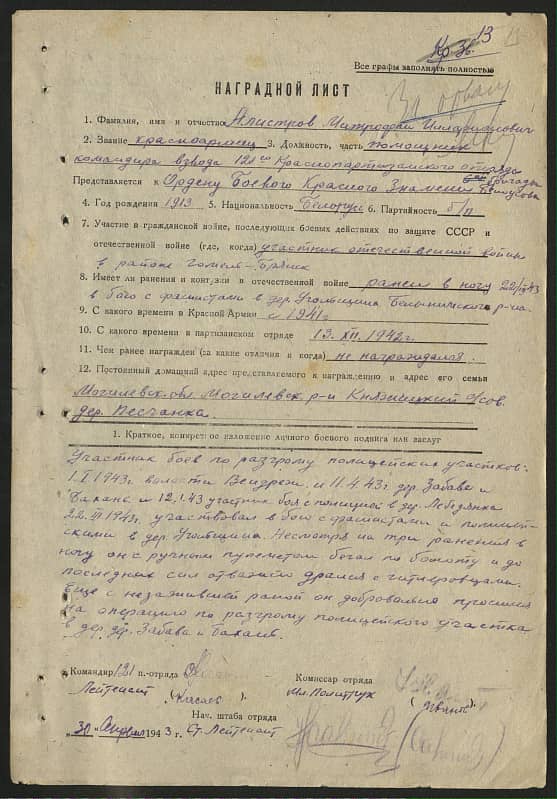 13
Все графы заполнять полностью
НАГРАДНОЙ ЛИСТ
1. Фамилия, имя и отчество Алистров Митрофан
2. Звание красноармеец 3. Должность, часть помощник
командира взвода 121го Краснопартизанского отряда
бригады
Представляется к Ордену Боевого Красного Знамени
4. Год рождения 1913 5. Национальность Белорус 6. Партийность б/п
7. Участие в гражданской войне, последующих боевых действиях по защите СССР и
отечественной войне (где, когда) участник отечественной войны
в районе Гомель-Брянск
8. Имеет ли ранения и контузии в отечественной войне ранен в ногу 22/III 43
в бою с фашистами в дер. Угольщина Белыничского р-на.
9. С какого времени в Красной Армии с 1941г
10. С какого времени в партизанском отряде 13.XII.1942г.
11. Чем ранее награжден (за какие отличия и когда) не награждался.
12. Постоянный домашний адрес представляемого к награждению и адрес его семьи
Могилевск. обл. Могилевск р-н Княжицкий с/сов.
дер. Песчанка.
1. Краткое, конкретное изложение личного боевого подвига или заслуг
Участник боев по разгрому полицейских участков:
1.I 1943г. волости Вендрож, и 11.4.43г. дер. Забава и
и 12.1.43 участник боя с полицией в дер. Лебедянка
22.III.1943г. участвовал в бою с фашистами и полицей-
скими в дер. Угольщина. Несмотря на три ранения в
ногу он с ручным пулеметом бегал по болоту и до
последних сил отважно дрался с гитлеровцами.
Еще с незажившей раной он добровольно просился
на операцию по разгрому полицейского участка
в дер. дер. Забава и
Командир 121 п.-отряда
Лейтенант (Касаев)
Комиссар отряда
Мл. Политрук (Иванов).
Нач. штаба отряда
„30" Апреля 1943 г. Ст. Лейтенант